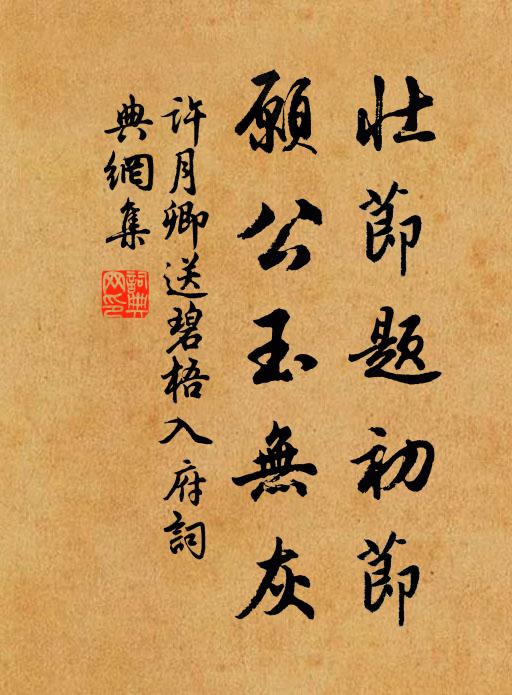 壮節題初節
願公玉無灰
許月卿送碧梧入府詞
典網集
詞典
网印